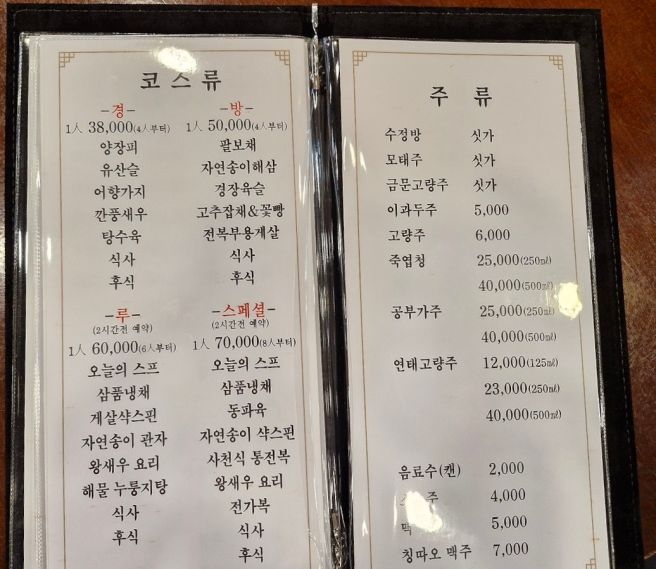 코스류
-경-
1人 38,000(4人부터)
양장피
유산슬
어향가지
깐풍새우
탕수육
식사
후식
-방-
1人 50,000(4人부터)
팔보채
자연송이해삼
경장육슬
고추잡채&꽃빵
전복부용게살
식사
후식
-루-
(2시간전 예약)
1人 60,000(6人부터)
오늘의 스프
삼품냉채
게살샥스핀
자연송이 관자
왕새우 요리
해물 누룽지탕
식사
후식
-스페셜-
(2시간전 예약)
1人 70,000(8人부터)
오늘의 스프
삼품냉채
동파육
자연송이 샥스핀
사천식 통전복
왕새우 요리
전가복
식사
후식
주 류
수정방 싯가
모태주 싯가
금문고량주 싯가
이과두주 5,000
고량주 6,000
죽엽청 25,000(250㎖)
40,000(500㎖)
공부가주 25,000(250㎖)
40,000(500㎖)
연태고량주 12,000(125㎖)
23,000(250㎖)
40,000(500㎖)
음료수(캔) 2,000
주 4,000
맥 5,000
칭따오 맥주 7,000